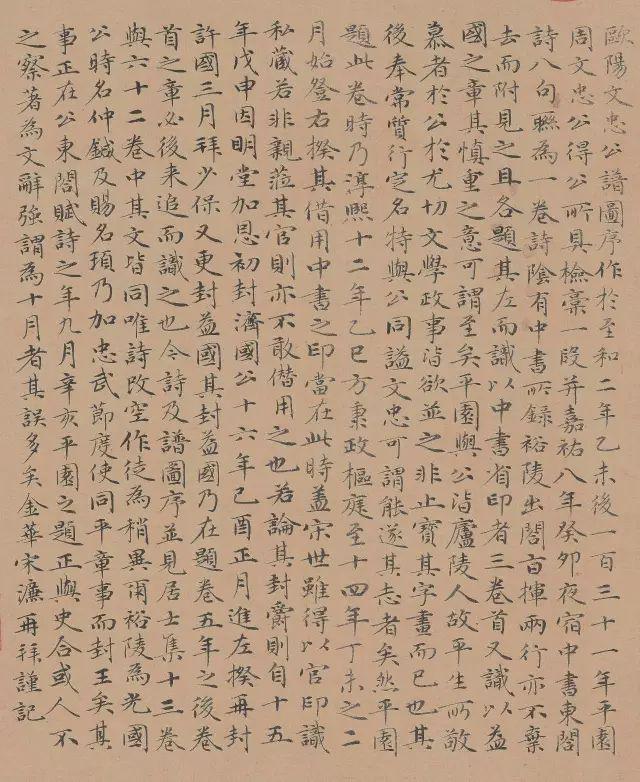 歐陽文忠公譜圖序作於至和二年乙未後一百三十一年平園
周文忠公得公所具檢藁一段并嘉祐八年癸卯夜宿中書東閤
詩八句聮為一卷詩陰有中書所錄裕陵出閤百揮兩行亦不棄
去而附見之且各題其左而識以中書省印者三卷首又識以益
國之章其慎重之意可謂至矣平園與公皆廬陵人故平生所敬
慕者於公於尤切文學政事皆欲並之非止寶其字畫而已也其
後奉常質行定名特與公同謚文忠可謂能遂其志者矣然平園
題此卷時乃淳熙十二年乙巳方秉政樞庭至十四年丁未之二
月始登右揆其借用中書之印當在此時蓋宋世雖得以官印識
私藏若非親蒞其官則亦不敢僭用之也若論其封爵則自十五
年戊申因明堂加恩初封濟國公十六年己酉正月進左揆再封
許國三月拜少保又更封益國其封益國乃在題卷五年之後卷
首之章必後来追而識之也今詩及譜圖序並見居士集十三卷
與六十二卷中其文皆同唯詩改空作徒為稍異爾裕陵為光國
公時名仲鍼及賜名頊乃加忠武節度使同平章事而封王矣其
事正在公東閤賦詩之年九月辛亥平園之題正與史合或人不
之察著為文辭強謂為十月者其誤多矣金華宋濂再拜謹記